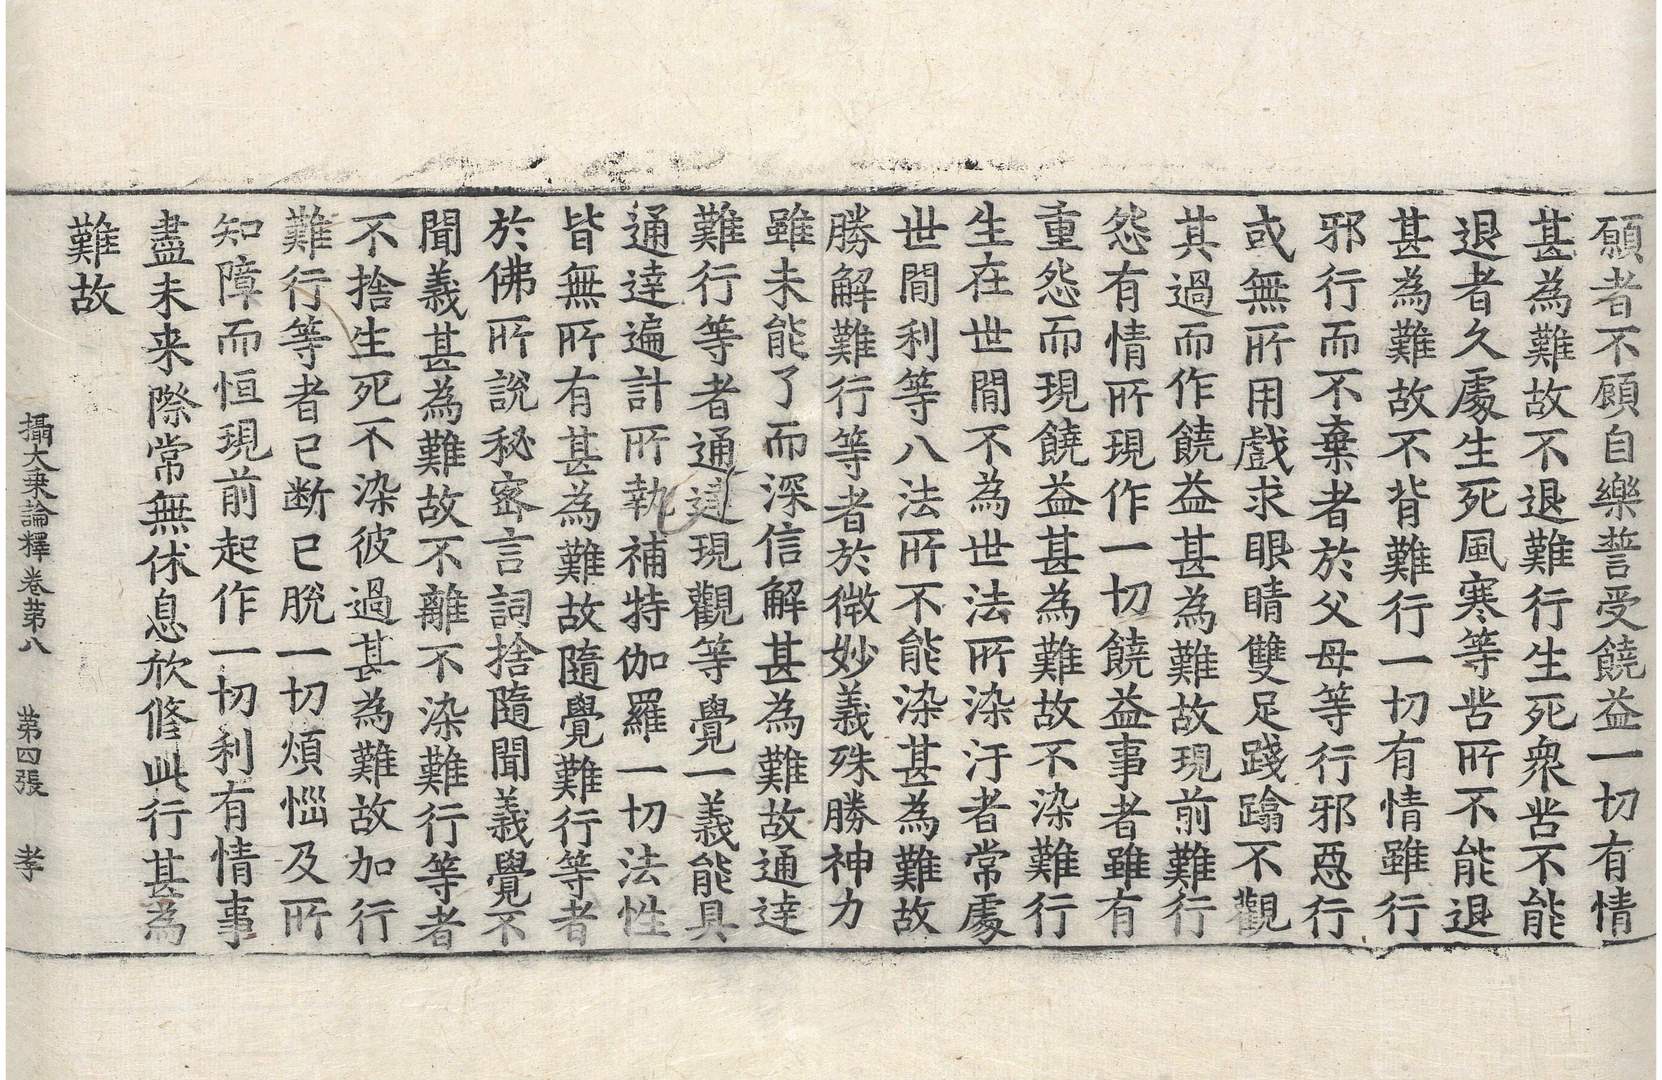 願者不願自樂誓受饒益一切有情
甚為難故不退難行生死衆苦不能
退者久處生死風寒等苦所不能退
甚為難故不背難行一切有情雖行
邪行而不棄者於父母等行邪惡行
或無所用戲求眼睛雙足踐蹹不觀
其過而作饒益甚為難故現前難行
怨有情所現作一切饒益事者雖有
重怨而現饒益甚為難故不染難行
生在世閒不為世法所染汙者常處
世閒利等八法所不能染甚為難故
勝解難行等者於微妙義殊勝神力
雖未能了而深信解甚為難故通達
難行等者通達現觀等覺一義能具
通達遍計所執補特伽羅一切法性
皆無所有甚為難故隨覺難行等者
於佛所說秘密言詞捨隨聞義覺不
聞義甚為難故不離不染難行等者
不捨生死不染彼過甚為難故加行
難行等者已斷已脫一切煩惱及所
知障而恒現前起作一切利有情事
盡未来際常無休息欣修此行甚為
難故
攝大乗論釋卷苐八　苐四張　孝